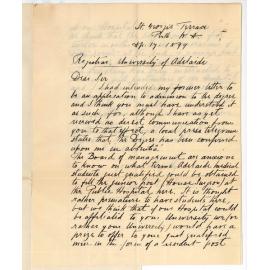 St George's Terrace
Perth W A
Sep. 17. 1899
Registrar, University of Adelaide
Dear Sir
I had intended my former letter to
be an application to admission to the degree
and I think you must have understood it
as such, for, although I have as yet
received no direct communication from
you to that effect, a local press telegram
states that the Degree has been conferred
upon me in absentia.
The Board of management are anxious
to know on what terms Adelaide medical
students just qualified could be obtained
to fill the junior post (House Surgeon) at
the Public Hospital here. It is thought
rather premature to have students here
but we think that if our Hospital could
be affiliated to your University we (or
rather your University) would have a
prize to offer to your just qualified
men in the form of a resident post